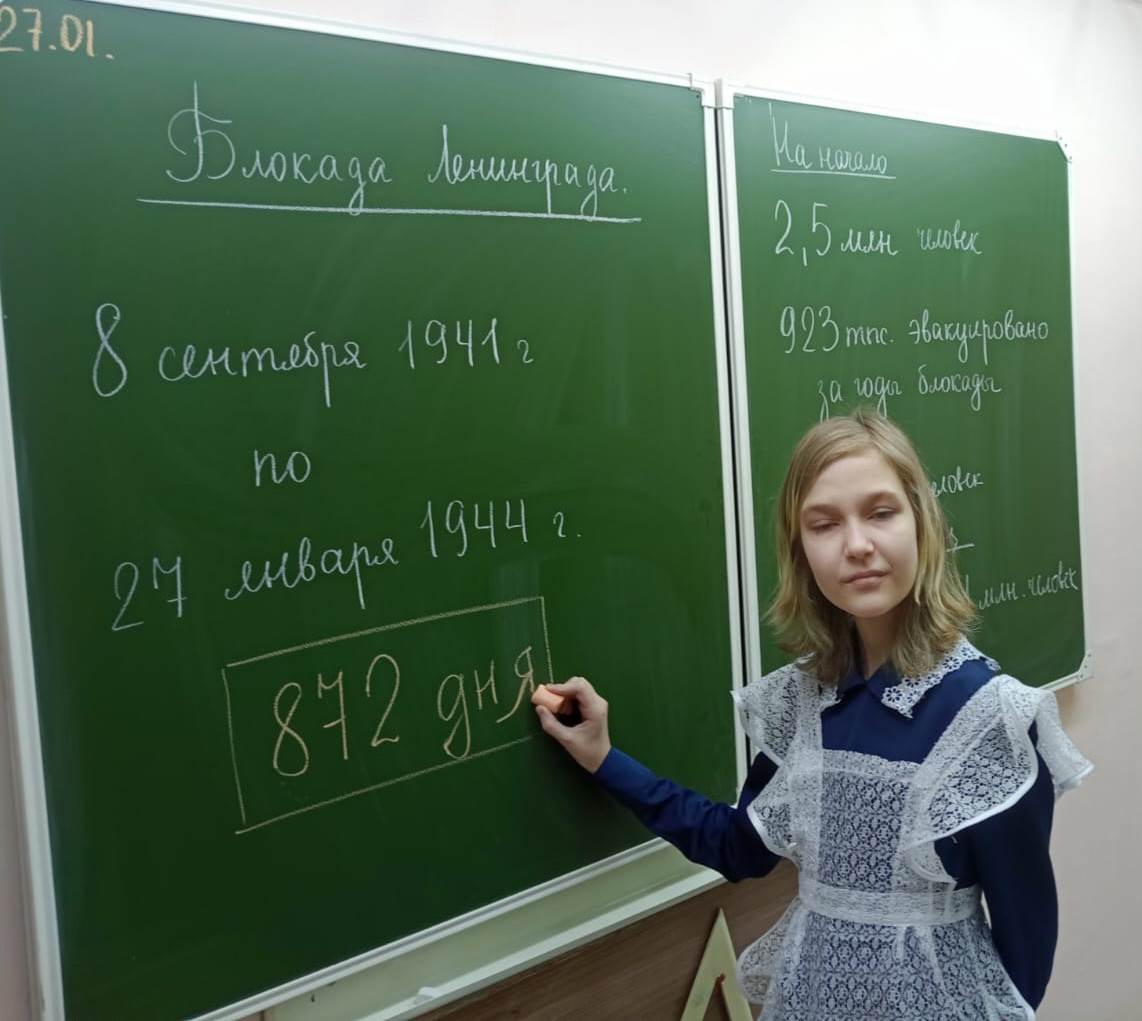 27.01.
Блокада Ленинграда.
8 сентября 1941 г
по
27 января 1944 г.
872 дня
На начало
2,5 млн человек
923 тыс. эвакуировано
за годы блокады
млн. человек